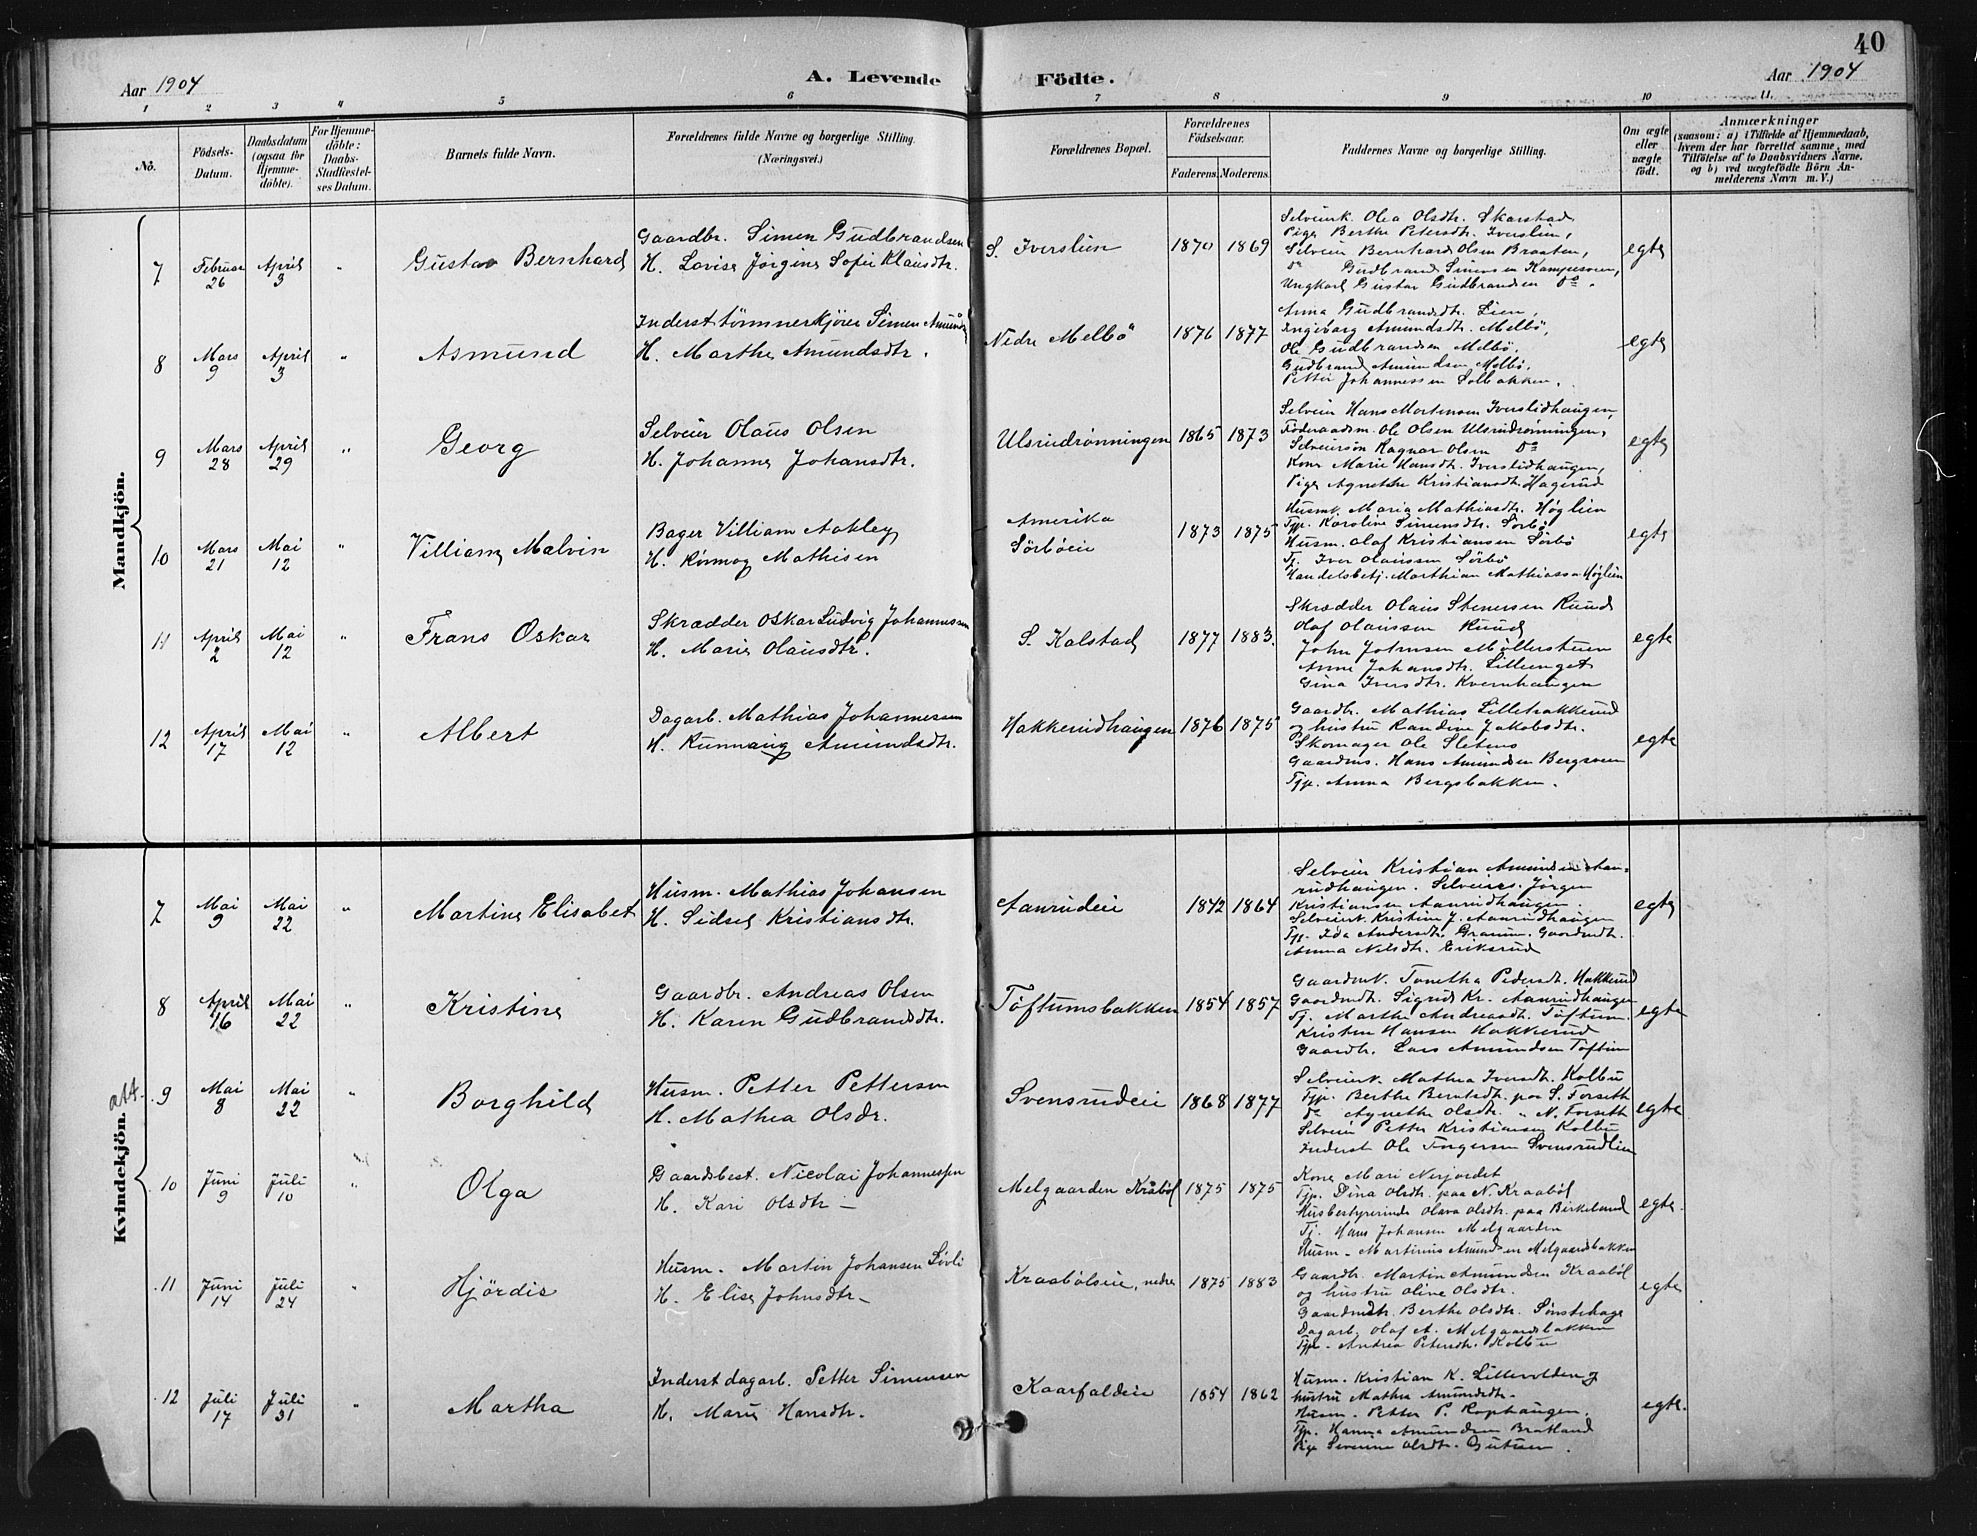 40
Aar 1904 A. Levende Födte. Aar 1904
1 2 3 4 5 6 7 8 9 10 11.
No.
Födsels-Datum.
Daabsdatum (ogsaa for Hjemme-döbte).
For Hjemme-döbte: Daabs-Stadfæstel-ses Datum.
Barnets fulde Navn.
Forældrenes fulde Navne og borgerlige Stilling. (Næringsvei.)
Forældrenes Bopæl.
Forældrenes Födselsaar.
Faderens. Moderens.
Faddernes Navne og borgerlige Stilling.
Om ægte eller uægte födt.
Anmærkninger
(saasom: a) i Tilfælde af Hjemmedaab, hvem der har forrettet samme, med Tilföielse af to Daabsvidners Navne, og b) ved uægtefödte Börn Anmelderens Navn m. V.)
Mandkjön.
7 Februar 26 April 3 " Gustav Bernhard
Gaardbr. Simen Gudbrandsen
H. Lovise Jørgine Sofie Klausdtr.
S. Iverslien 1870 1869
Selveierk. Olea Olsdtr. Skarstad
Pige Berthe Petersdtr. Iverslien,
Selveier Bernhard Olsen Braaten,
do Gudbrand Simensen Kampesveen,
Ungkarl Gustav Gudbrandsen do.
egte
8 Mars 9 April 3 " Asmund
Inderst tømmerkjører Simen Amunds
H. Marthe Amundsdtr.
Nedre Melbö 1876 1877
Anna Gudbrandsdtr. Lien,
Ingeborg Amundsdtr. Melbö,
Ole Gudbrandsen Melbö,
Gudbrand Amundsen Melbö,
Petter Johannessen Solbakken.
egte
9 Mars 28 April 29 " Georg
Selveier Olaus Olsen
H. Johanne Johansdtr.
Ulsrudrönningen 1865 1873
Selveier Hans Mortensen Iverslidhaugen,
Föderaadsm. Ole Olsen Ulsrudrönningen,
Selveiersön Ragnar Olsen do
Kone Marie Hansdtr. Iverslidhaugen,
Pige Agnethe Kristiansdtr. Hagerud
egte
10 Mars 21 Mai 12 " Villiam Malvin
Bager Villiam Aakley
H. Rönnog Mathisen
Amerika
Sörböeie 1873 1875
Husmk. Maria Mathiasdtr. Høglien
Tjp. Karoline Simensdtr. Sorbö
Husm. Olaf Kristiansen Sörbö
Tj. Iver Olaussen Sörbö
Handelsbetj. Marthian Mathiassen Høglien
egte
11 April 2 Mai 12 " Frans Oskar
Skrædder Oskar Ludvig Johannessen
H. Marie Olausdtr.
S. Kalstad 1877 1883.
Skrædder Olaus Stenersen Ruud
Olaf Olaussen Ruud
John Johnsen Møllerstuen
Anne Johansdtr. Lillenget
Gina Iversdtr. Kvernhaugen
egte
12 April 17 Mai 12 " Albert
Dagarb. Mathias Johannessen
H. Runnaug Amundsdtr.
Hakkerudhaugen 1876 1875
Gaardbr. Mathias Lillehakkerud
og hustru Randine Jakobsdtr.
Skomager Ole Sletens
Gaardms. Hans Amundsen Bergsveen
Tjp. Anna Bergsbakken.
egte
Kvindekjön.
7 Mai 9 Mai 22 " Martine Elisabet
Husm. Mathias Johansen
H. Sidsel Kristiansdtr.
Aanrudeie 1842 1864
Selveier Kristian Amundsen Aan-
rudhaugen. Selveiers. Jörgen
Kristiansen Aanrudhaugen.
Selveierk. Kristine J. Aanrudhaugen
Tjp. Ida Andersdtr. Granum. Gaardmdtr.
Anna Nilsdtr. Eriksrud
egte
8 April 16 Mai 22 " Kristine
Gaardbr. Andreas Olsen
H. Karen Gudbrandsdtr.
Töftumsbakken 1854 1857
Gaardmk. Tonetha Pedersdt. Hakkerud
Gaardmdt. Sigrid Kr. Aanrudhaugen
Tj. Marthe Andreasdt. Töftum.
Kristen Hansen Hakkerud
Gaardbr. Lars Amundsen Töftum
egte
att. 9 Mai 8 Mai 22 " Borghild
Husm. Petter Pettersen
H. Mathea Olsdr.
Svensrudeie 1868 1877
Selveierk. Mathea Iversdt. Kolbu
Tjp. Berthe Berntsdt. paa S. Forseth
do Agnethe Olsdtr. " N. Forseth
Selveier Petter Kristiansen Kolbu
Inderst Ole Torgersen Svensrudlien
egte
10 Juni 9 Juli 10 " Olga
Gaardsbest. Nicolai Johannessen
H. Kari Olsdtr –
Melgaarden Kråböl 1875 1875
Kone Mari Nerjordet
Tjp. Dina Olsdt. paa N. Kraaböl
Husbestyrerinde Olava Olsdtr. paa Birkelund
Tj. Hans Johansen Melgaarden
Husm – Martinus Amundsen Melgaardsbakken
egte.
11 Juni 14 Juli 24 " Hjördis
Husm – Martin Johansen Lövli
H. Elise Johnsdtr –
Kraabölseie, nedre 1875 1883
Gaardbr. Martin Amundsen Kraaböl
og hustru Oline Olsdtr.
Gaardmdtr. Berthe Olsdtr. Sönstehage
Dagarb. Olaf A. Melgaardsbakken
Tjp – Andrea Petersdtr. Kolbu
egte
12 Juli 17 Juli 31 " Martha
Inderst dagarb. Petter Simensen
H. Marie Hansdtr.
Kaarfaldeie 1854 1862
Husm. Kristian K. Lillevolden og
hustru Mathea Amundsdtr –
Husm – Petter P. Rophaugen.
Tjp. Hanna Amundsen Bratland
Pige Severine Olsdtr. Gutuen.
egte.